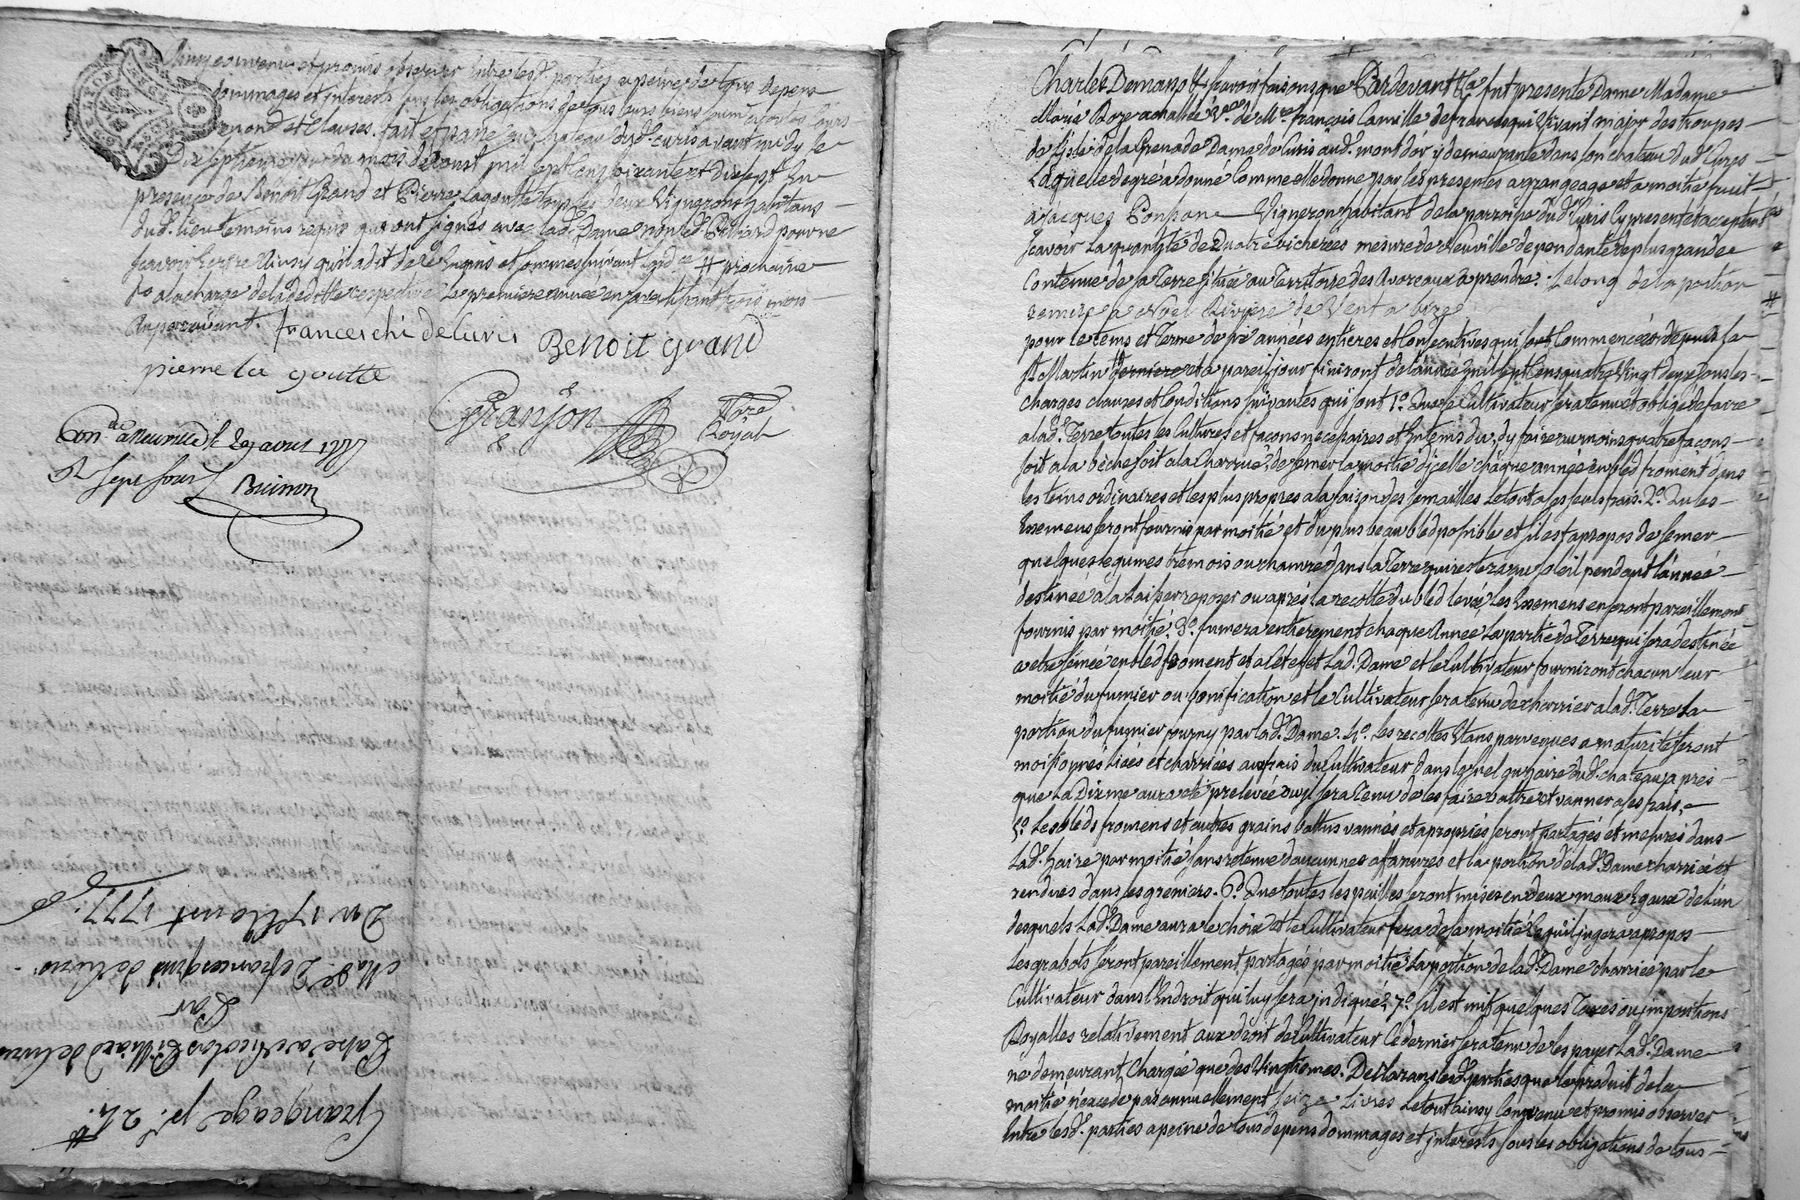 Ainsy convenu et promis observer entre lesd. parties a peine de tous depens
dommages et interests sous les obligations de tous leurs biens
et clauses. fait et passé au chateau dud. Curis avant midy le
Dix septieme du mois d'aoust mil sept cens soixante et dix sept En
presence de Benoit Grand et Pierre Lagoutte tous les deux Vignerons habitans
dud. lieu temoins requis qui ont signés avec lad. Dame non led. Billiard pour ne
scavoir ainsy qu'il a dit de ce enquis et sommé suivant l'ord.ce # prochaine
a la charge de la deditte respective la premiere année en s'avertissant trois mois
auparavant.
franceschi de Curis
Benoit grand
pierre la goutte
Granjon
Nore
Royal
Con.lé a Neuville le 29 aout 1777
R. Sept sous
Buisson
Grangeage p.r 24#
Passé a Nicolas Billiard de Curis
Par
Mad.e Defranceschi de Curis
Du 17 Aoust 1777.
Charles Demasso &c scavoir faisons que Pardevant &c fut presente Dame Madame
Marie Roze V.ve de M.re françois Camille de franceschi Vivant major des troupes
de l'isle de la Grenade Dame de Curis aud. mont d'or y demeurante dans son chateau dud. Curis
Laquelle de gré a donné comme elle donne par les presentes a grangeage et a moitié fruit
a Jacques Ponson Vigneron habitant de la parroisse dud. Curis cy present et acceptant
scavoir la quantité de Quatre bicherées mesure de Neuville dependante de plus grande
Contenue de sa Terre située au Territoire des Avoreaux a prendre. Le long de la portion
remise a Noel Riviere de Vent a bize
pour le tems et terme de six années entieres et consecutives qui sont commencées depuis la
S.t Martin derniere et a pareil jour finiront de l'année mil sept cens quatre Vingt deux sous les
charges clauses et conditions suivantes qui sont 1.o Que le Cultivateur sera tenu et obligé de faire
a lad. Terre toutes les Cultures et façons necessaires et en tems du, d'y faire au moins quatre façons
soit a la bêche soit a la Charrue, de semer la moitié d'icelle chaque année en bled froment dans
les tems ordinaires et les plus propres a la saison des semailles Le tout a ses seuls frais. 2.o Que les
Essemens seront fournis par moitié et du plus beau bled possible et s'il est apropos de semer
quelques legumes tremois ou chanvre dans la Terre qui restera au soleil pendant l'année
destinée a la laisser reposer ou après la recolte du bled levée, les Essemens en seront pareillement
fournis par moitié. 3.o fumera entierement chaque Année la partie de Terre qui sera destinée
a etre semée en bled froment et a cet effet Lad. Dame et le Cultivateur fourniront chacun leur
moitié du fumier ou bonification et le Cultivateur sera tenu de charrier a lad. Terre la
portion du fumier fourny par lad. Dame. 4.o Les recoltes Etans parvenues a maturité seront
moissonnées liées et charriées aux frais du Cultivateur dans l'aire dud. chateau apres
que La Dixme aura eté prelevée ou il sera Tenu de les faire battre et vanner a ses frais.
5.o Les bleds fromens et autres grains battus vannés et apropriés seront partagés et mesurés dans
lad. haire par moitié sans retenue d'aucunnes affanures et la portion de lad. Dame charriée et
rendues dans ses greniers. 6.o Que toutes les pailles seront mises en deux monceaux Egaux de l'un
desquels Lad. Dame aura le choix et le Cultivateur fera de sa moitié ce qu'il jugera apropos
Les grabots seront pareillement partagés par moitié la portion de lad. Dame charriée par le
Cultivateur dans l'Endroit qui luy sera indiqué. 7.o S'il est mis quelques Taxes ou impositions
Royalles relativement aux droit de Cultivateur Ce dernier sera tenu de les payer Lad. Dame
ne demeurant Chargée que des Vingtiemes. Declarans lesd. parties que le produit de la
moitié n'excede pas annuellement seize Livres Le tout ainsy Convenu et promis observer
Entre lesd. parties a peine de tous depens dommages et interests sous les obligations de tous